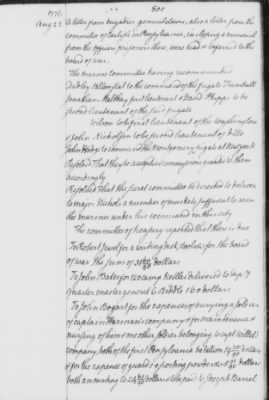 1776. 300
Aug 22 A letter from brigadier general Mercer, also a letter from the
committee of Carlisle in Pensylvania, enclosing a memorial
from the officers prisoners there, were read & referred to the
board of war.
The marine committee having recommended
Dudley Saltonstall to the command of the frigate Trumbull
Jonathan Maltbay first lieutenant & David Phipps to be
second lieutenant of the said frigate
Wilson to be first lieutenant of the Washington
& John Nicholson to be second lieutenant of ditto
John Hodge to command the Montgomery frigate at New york
Resolved That they be accepted & commissions granted to them
accordingly
Resolved That the secret committee be directed to deliver
to major Nichols a number of muskets sufficient to arm
the marines under his command in this city
The committee of treasury reported that there is due
To Robert Jewel for a writing desk, stools &c for the board
of war the sum of 31 dollars
To John Bates for 120 camp kettles delivered to dep'y
Quarter master general to Biddle 160 dollars
To John Bogart for the expences of burying a soldier
of captain Harman's company & for maintenance &
nursing of him & one other soldier belonging to capt
company, both of the first Pensylvania batallion 19 dollars
& for the expence of guards & posting provided 5 dollars
both amounting to 24 dollars to be paid to Joseph Barrel